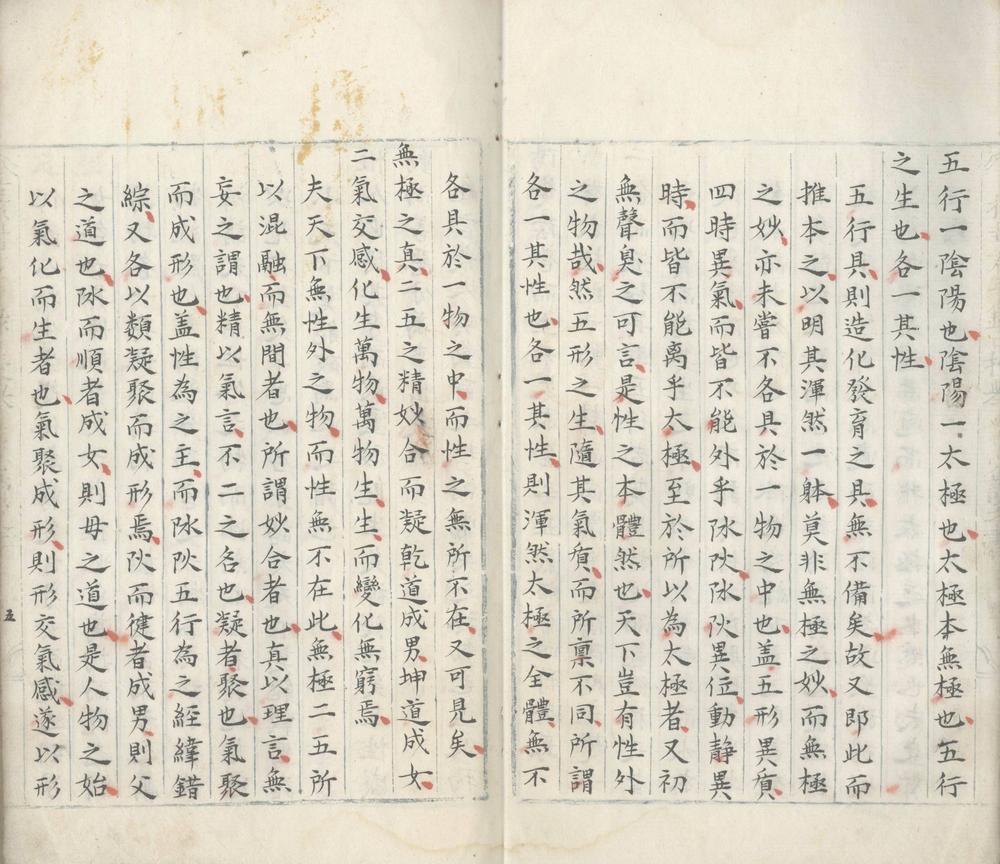 五行一陰陽也陰陽一太極也太極本無極也五行
之生也各一其性
五行具則造化發育之具無不備矣故又即此而
推本之以明其渾然一躰莫非無極之妙而無極
之妙亦未嘗不各具於一物之中也盖五形異質
四時異氣而皆不能外乎阥阦阥阦異位動静異
時而皆不能离乎太極至於所以為太極者又初
無聲臭之可言是性之本體然也天下豈有性外
之物哉然五形之生隨其氣質而所禀不同所謂
各一其性也各一其性則渾然太極之全體無不
各具於一物之中而性之無所不在又可見矣
無極之真二五之精妙合而凝乾道成男坤道成女
二氣交感化生萬物萬物生生而變化無窮焉
夫天下無性外之物而性無不在此無極二五所
以混融而無間者也所謂妙合者也真以理言無
妄之謂也精以氣言不二之名也凝者聚也氣聚
而成形也盖性為之主而阥阦五行為之經緯錯
綜又各以類凝聚而成形焉阦而健者成男則父
之道也阥而順者成女則母之道也是人物之始
以氣化而生者也氣聚成形則形交氣感遂以形
五